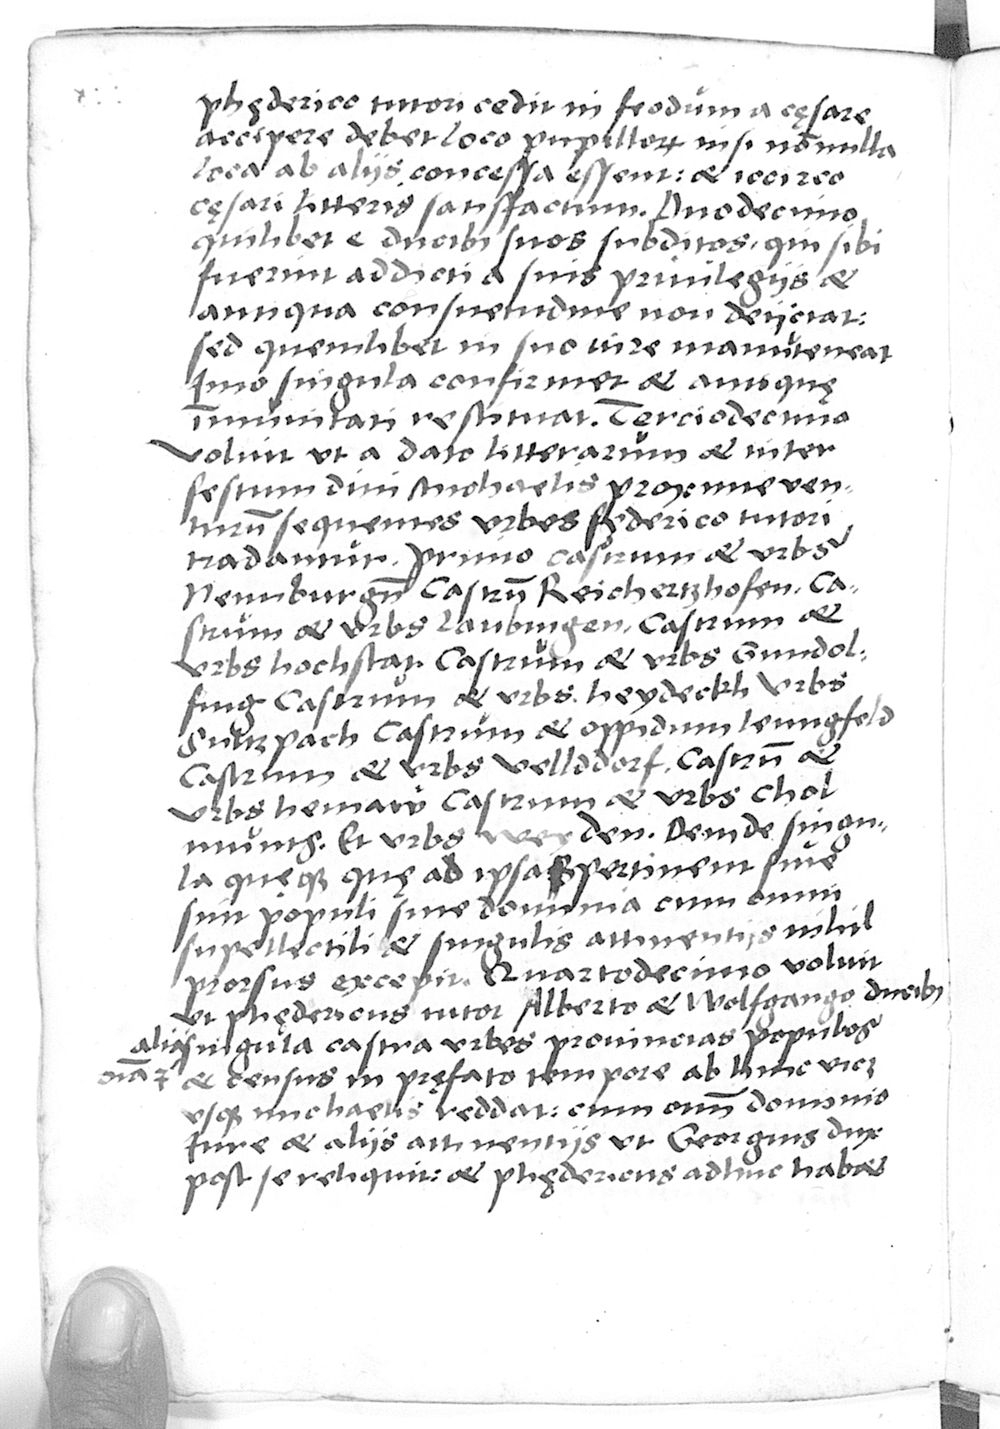 phęderico tutori cedit in feodum a cęsare
accipere debet loco pupillorꝝ nisi nõnulla
loca ab alijs concessa essent: & iccirco
cęsari litteris satisfactum. Duodecimo
quilibet e ducibꝫ suos subditos, qui sibi
fuerint addicti a suis priuilegijs &
antiqua consuetudine non deijciat:
sed quemlibet in suo iure manuteneat
Imo singula confirmet & antiquę
im̃unitati restituat. Terciodecimo
voluit vt a dato litterarum & inter
festum diui Michaelis proxime ven-
turũ sequentes vrbes federico tutori
tradantur. Primo castrum & vrbs
Neunburgñ Castrũ Reichertzhofen. Ca-
strum & vrbs Laubingen. Castrum &
vrbs hochstat. Castrum & vrbs Gundol-
fing Castrum & vrbs heydeckh Vrbs
Sultzpach Castrum & oppidum lenngfeld
Castrum & vrbs Vellddorf. Castrũ &
vrbs hemaw Castrum & vrbs Chol
muntz. Et vrbs weyden. Deinde singu-
la quęqꝫ quę ad ipsas pertinent siue
sint populi siue dominia cum omni
supellectili & singulis attinentijs nihil
prorsus excepit. Quartodecimo voluit
vt phędericus tutor Alberto & Wolfgango ducibꝫ
alia singula castra vrbes prouincias populos
& census in pręfato tempore ab hinc vicꝫ
vsqꝫ michaelis reddat: cum omñ dominio
Iure & alijs attinentijs vt Georgius dux
post se reliquit: & phędericus adhuc habæ